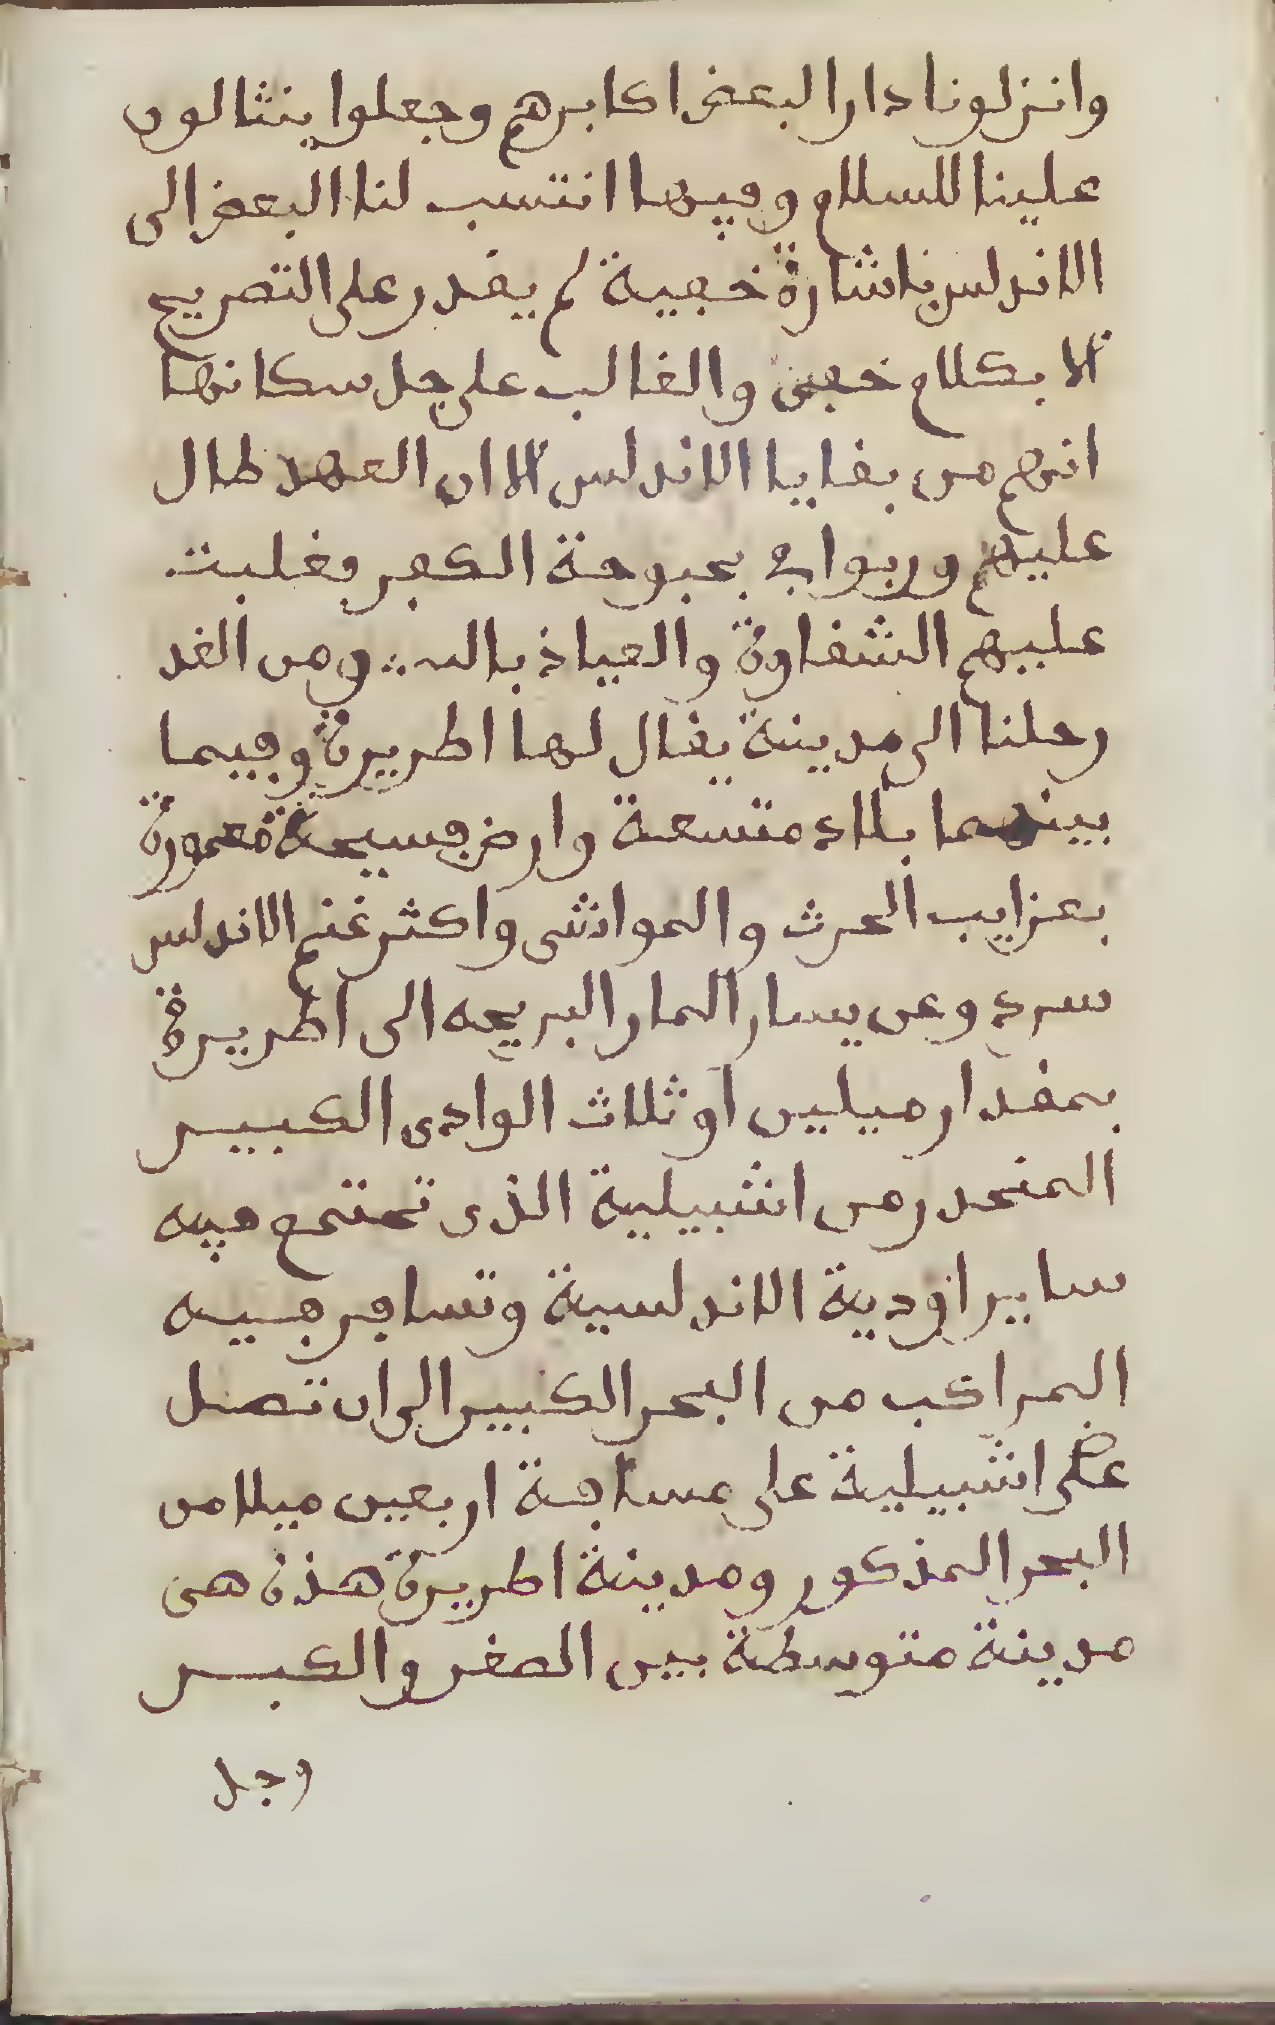 وانزلونا دارا لبعض اكابرهم وجعلوا ينثالون
علينا للسلام وفيها انتسب لنا البعض الى
الاندلس باشارة خفية لم يقدر على التصريح
الا بكلام خفي والغالب على جل سكانها
انهم من بقايا الاندلس الا ان العهد طال
عليهم وربوا في بحبوحة الكفر فغلبت
عليهم الشقاوة والعياذ بالله ومن الغد
رحلنا الى مدينة يقال لها اطريرة وفيما
بينهما بلاد متسعة وارض فسيحة معمورة
بعزايب الحرث والمواشي واكثر غنم الاندلس
سرد وعن يسار المار البريجه الى اطريرة
بمقدار ميلين او ثلاث الوادي الكبير
المنحدر من اشبيلية الذي تجتمع فيه
ساير اودية الاندلسية وتسافر فيه
المراكب من البحر الكبير الى ان تصل
على اشبيلية على مسافة اربعين ميلا من
البحر المذكور ومدينة اطريرة هذه هي
مدينة متوسطة بين الصغر والكبر
وجل